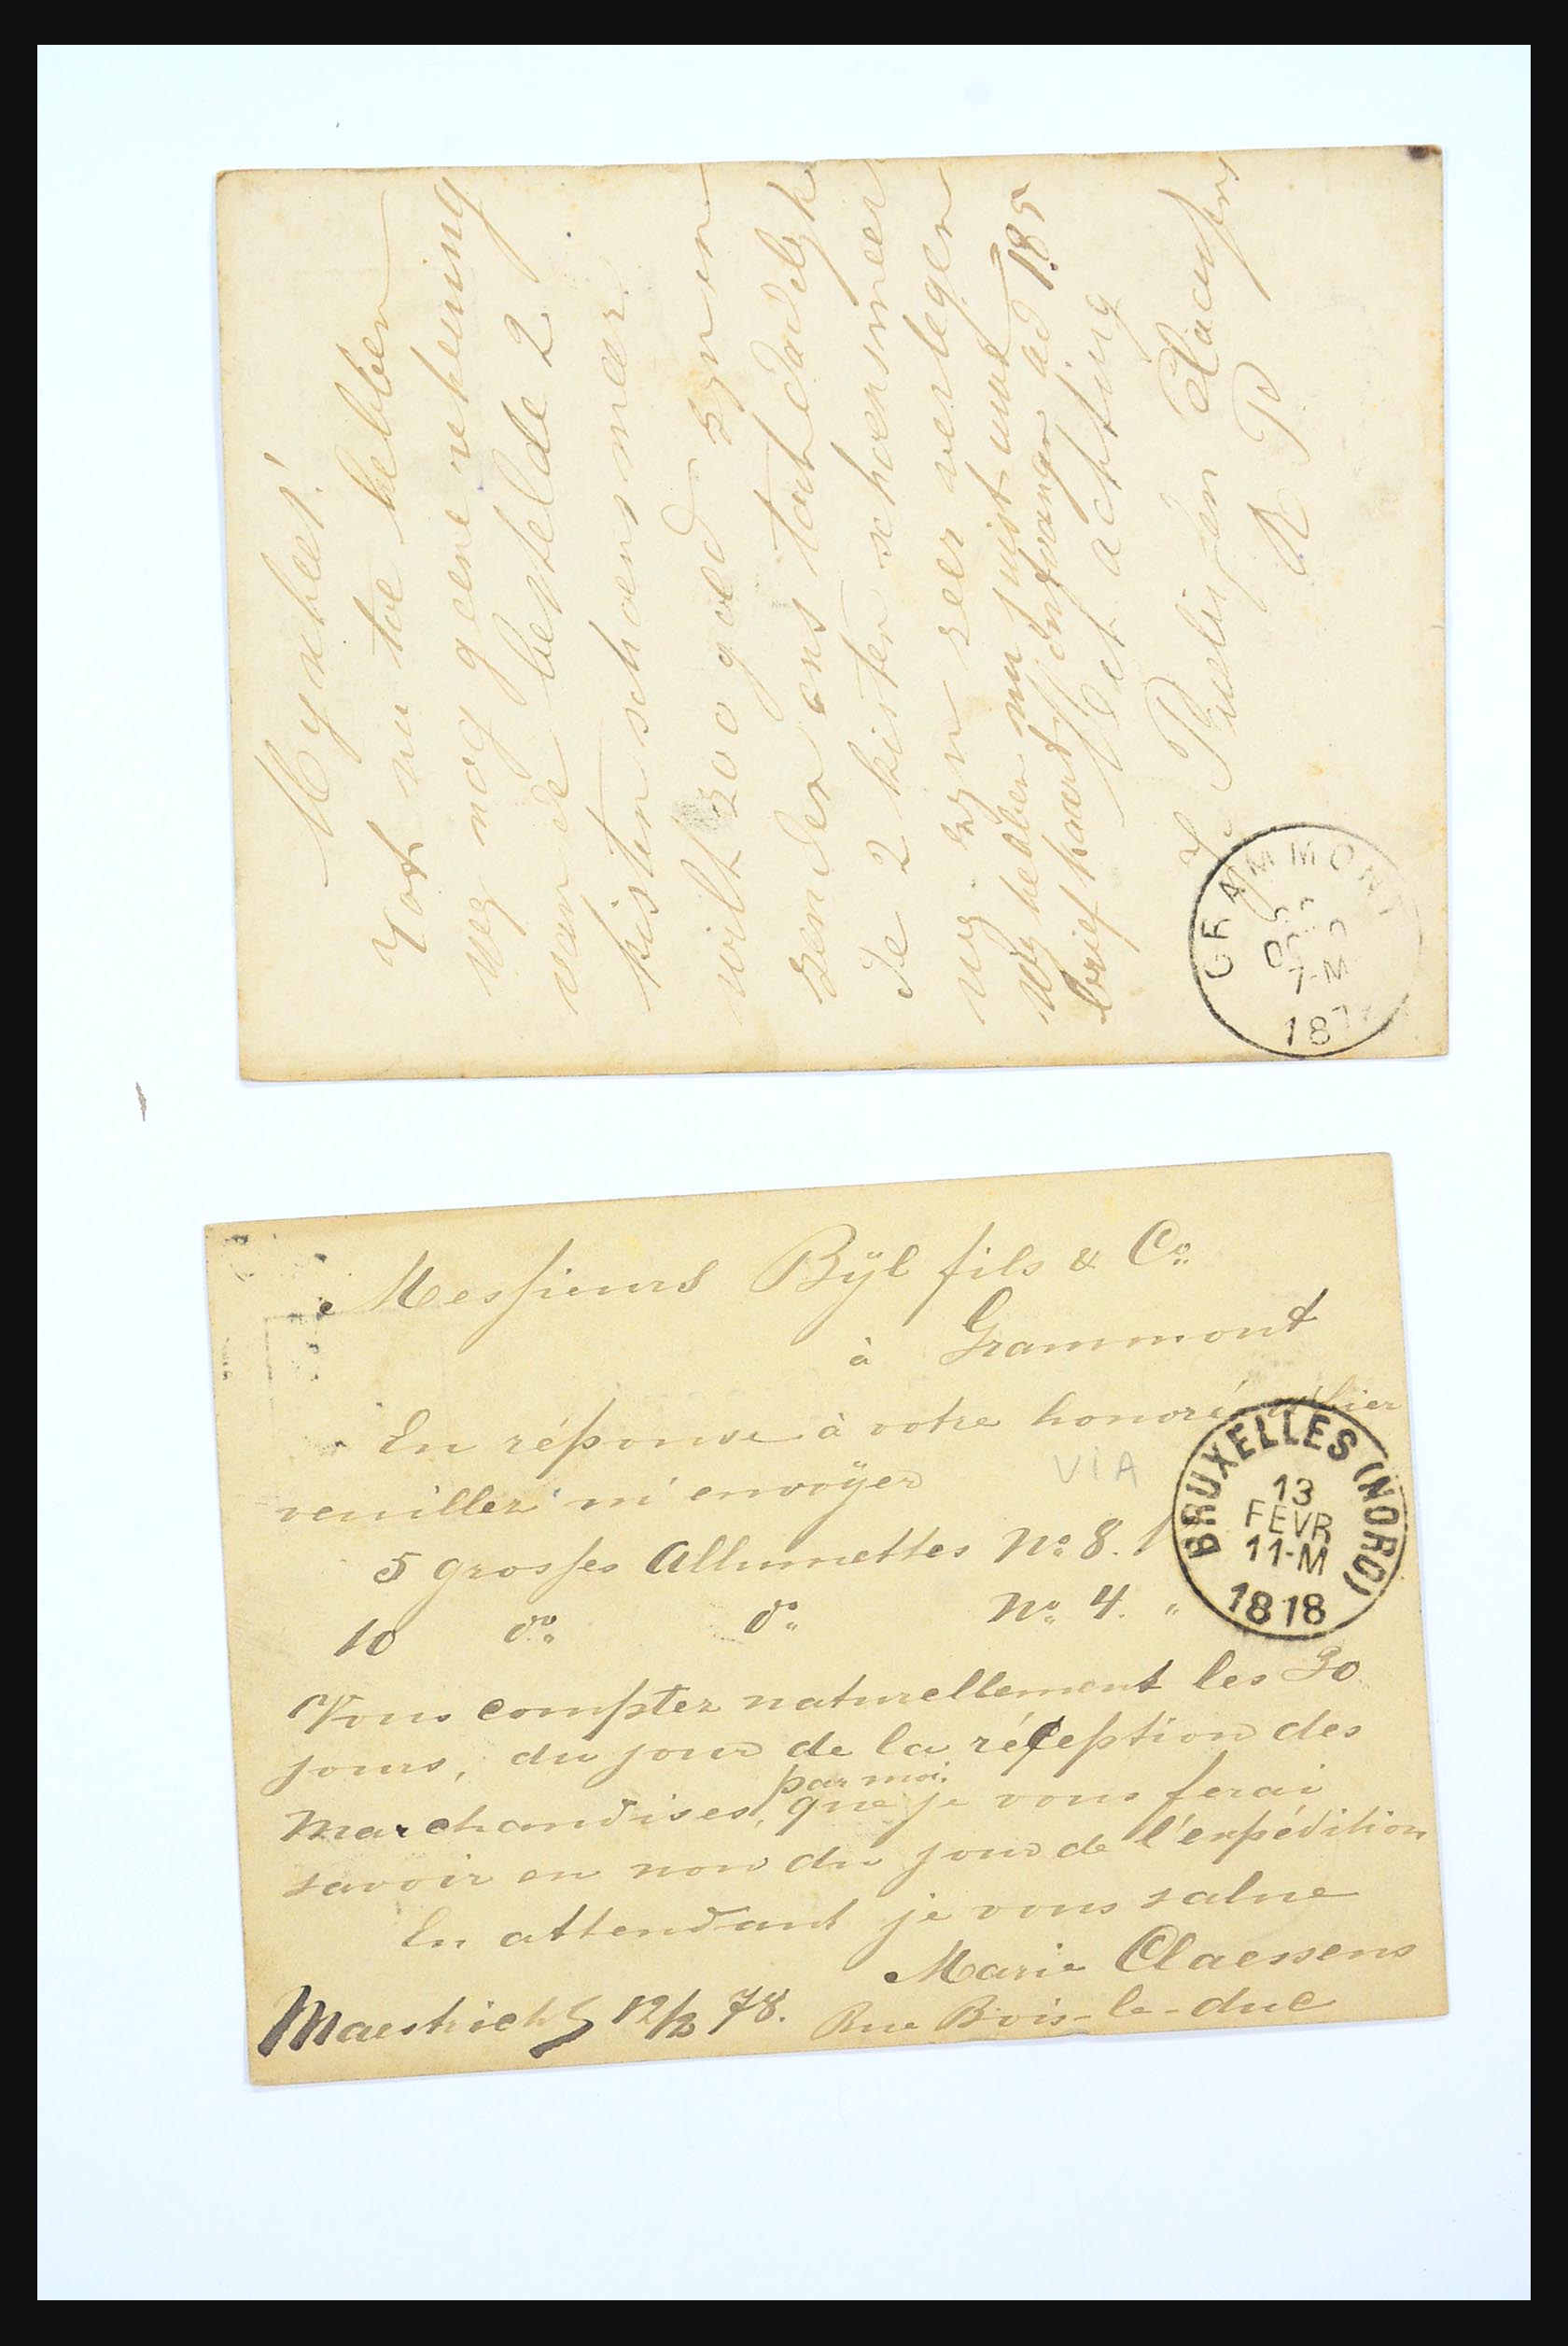 Mynheer!
Tot nu toe hebben
wy nog geene rekening
van de bestelde 2
kisten schoensmeer
wilt zoo goed zyn en
zenden ons
de 2 kisten schoensmeer
wy zyn zeer verlegen
Wy hebben nu juist uwe
briefkaart ontvangen ad 185
Met achting
Claessens
R P
GRAMMONT
7-M
187
Messieurs Bÿl fils & Co.
à Grammont
En réponse à votre honorée d'hier
veuillez m'envoÿer
VIA
5 grosses Allumettes No. 8. 1
10 do. do. No. 4. "
BRUXELLES (NORD)
13
FEVR
11-M
1818
Vous comptez naturellement les 30
jours, du jour de la réception des
par moi.
Marchandises, que je vous ferai
savoir en non du jour de l'expédition
En attendant je vous salue
Marie Claessens
Maestricht 12/2 78. Rue Bois-le-duc